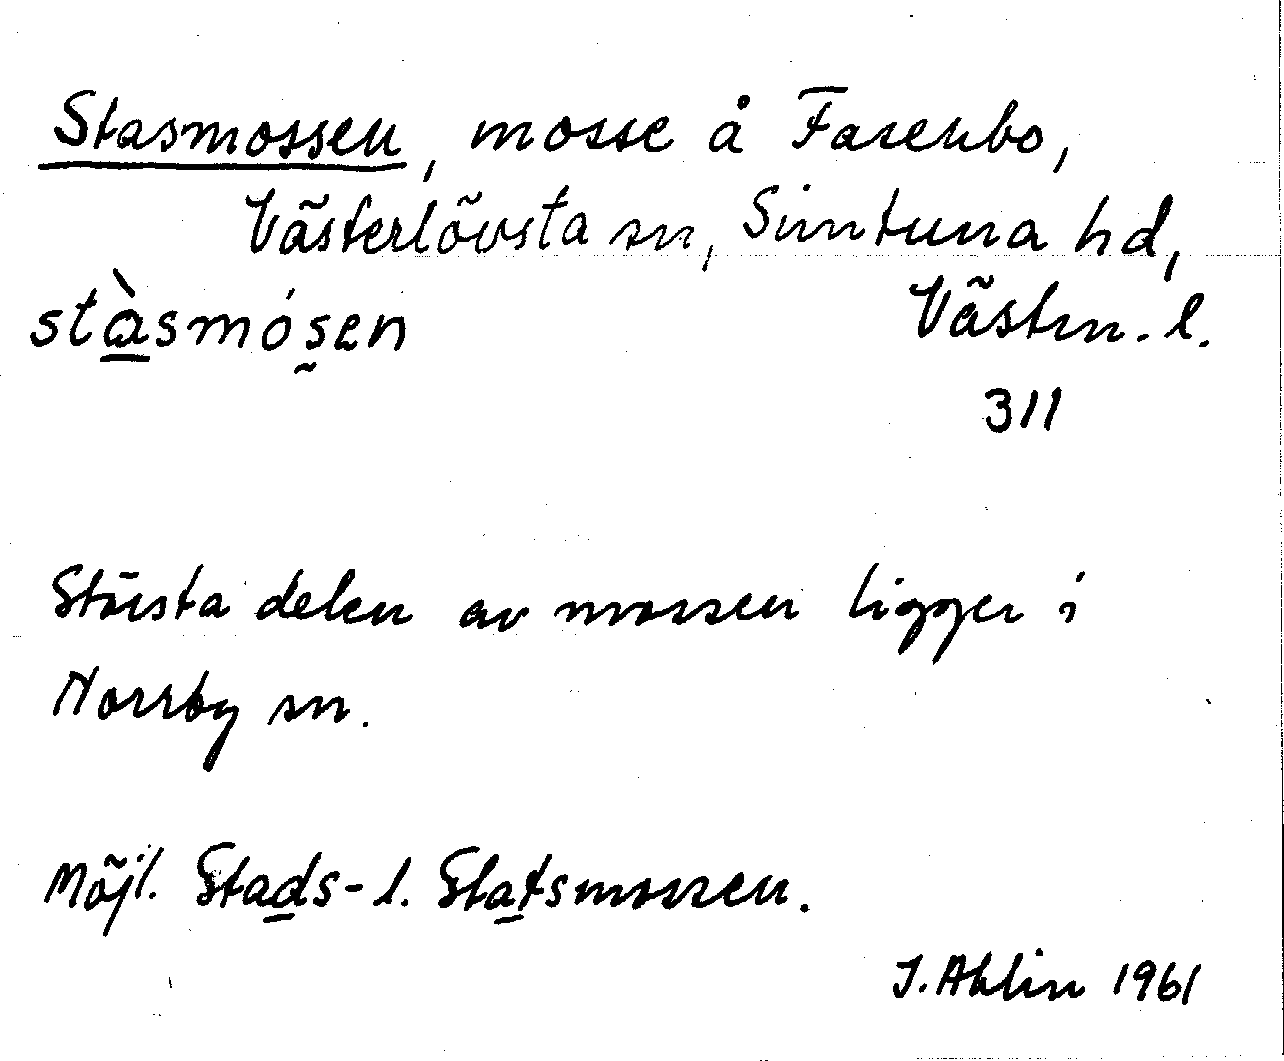 Stasmossen, mosse å Farenbo,
Västerlövsta sn, Simtuna hd,
stàsmósen Västm. l.
311
Största delen av mossen ligger i
Norrby sn.
Möjl. Stads- l. Statsmossen.
J. Ahlin 1961